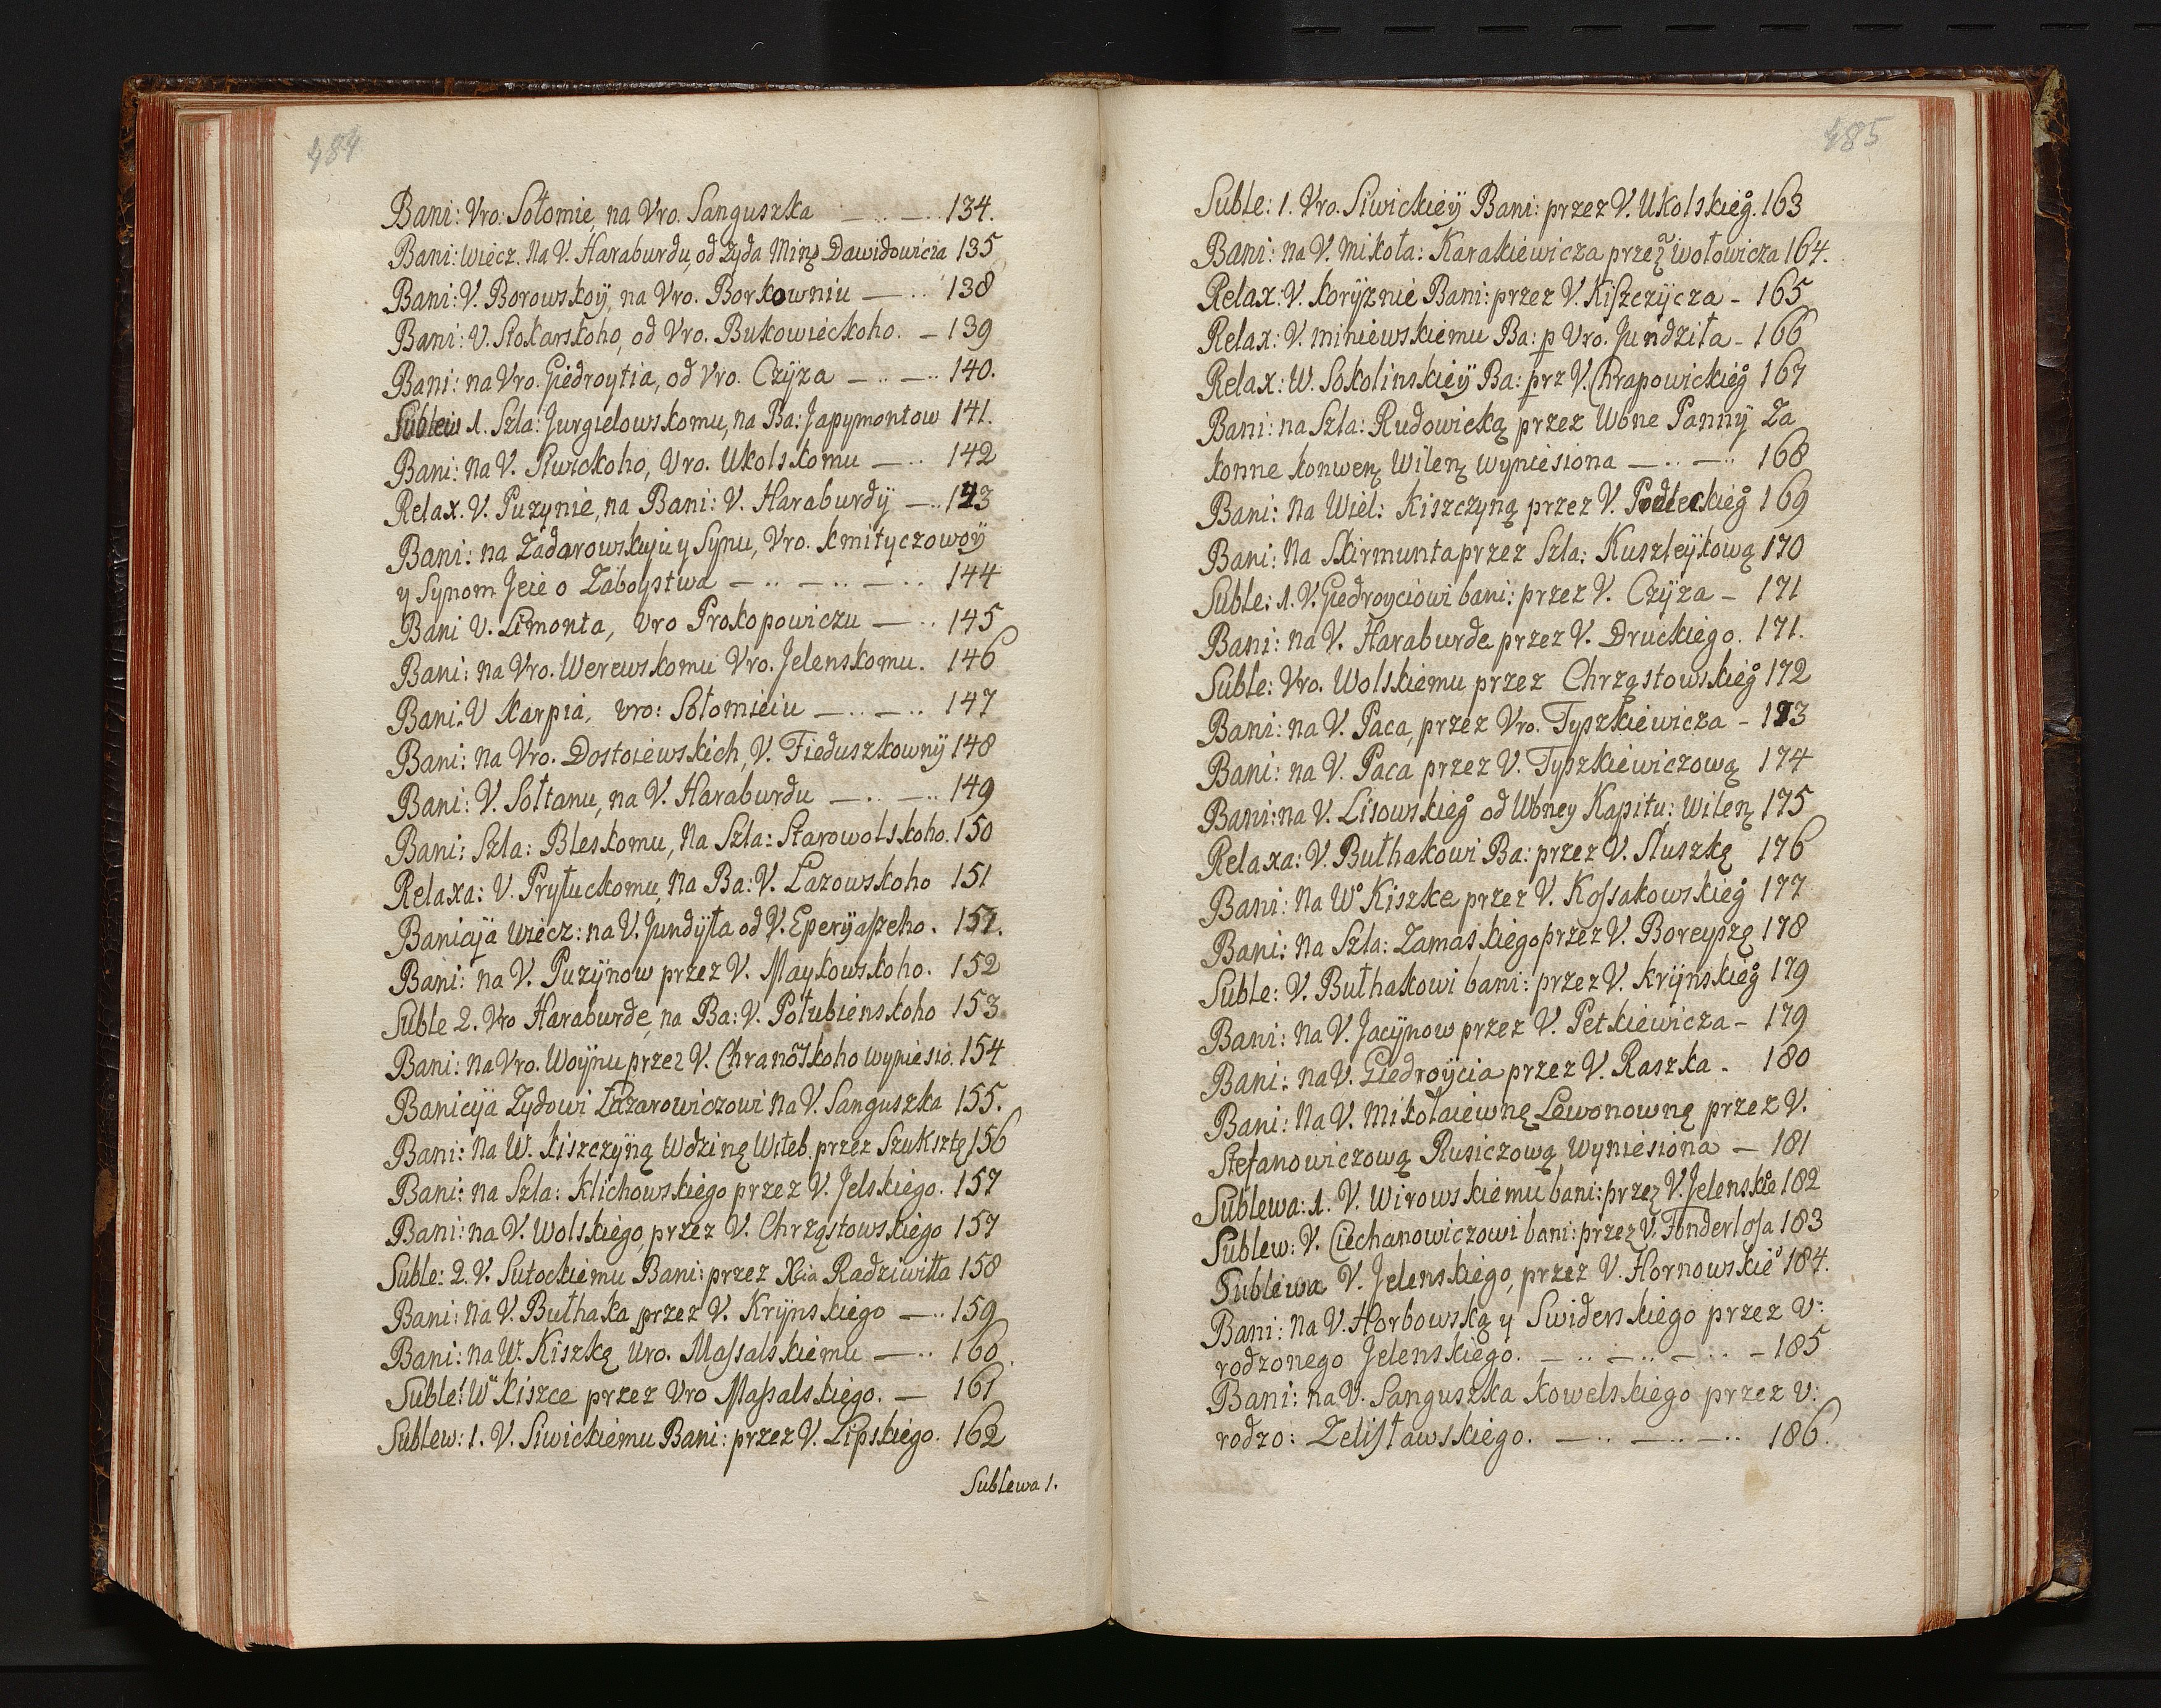 484
Bani: Vro: Sołomie, na Vro. Sanguszka — .. — .. 134.
Bani: wiecz. Na V. Haraburdu, od Żyda Minʒ Dawidowicza 135
Bani: V. Borowskoÿ, na Vro. Borkowniu — .. 138
Bani: V. Stokarskoho, od Vro. Bukowieckoho. — 139
Bani: na Vro. Giedroytia, od Vro. Czÿza — .. — .. 140.
Sublew 1. Szla: Jurgielowskomu, na Ba: Japymontow 141.
Bani: Na V. Siwickoho, Vro. Ukolskomu — .. 142
Relax. V. Puzynie, na Bani: V. Haraburdÿ — .. 143
Bani: na Zadarowskuju y Synu, Vro. Kmityczowoÿ
y Synom Jeie o Zaboystwa — .. — .. — .. 144
Bani V. Limonta, Vro Prokopowiczu — .. 145
Bani: na Vro. Werewskomu Vro. Jelenskomu. 146
Bani: V Karpia, vro: Sołomieiu — .. — .. 147
Bani: Na Vro. Dostoiewskich, V. Fieduszkownÿ 148
Bani: V. Sołtanu, na V. Haraburdu — .. — .. 149
Bani: Szla: Bleskomu, Na Szla: Starowolskoho. 150
Relaxa: V. Pryłuckomu, Na Ba: V. Lazowskoho 151
Banicÿa wiecz: na V. Jundÿła od V. Eperÿaszeho. 151.
Bani: na V. Puzÿnow przez V. Maykowskoho. 152
Suble 2. Vro Haraburde, na Ba: V. Połubienskoho 153
Bani: Na Vro. Woÿnu przez V. Chranowskoho wyniesio. 154
Banicÿa Zydowi Łazarowiczowi Na V. Sanguszka 155.
Bani: Na W. Kiszczÿnę Wdzinę Witeb. przez Szuksztę 156
Bani: na Szla: Klichowskiego przez V. Jelskiego. 157
Bani: na V. Wolskiego, przez V. Chrząstowskiego 157
Suble: 2. V. Sutockiemu Bani: przez Xcia Radziwiłła 158
Bani: Na V. Bułhaka przez V. Krÿnskiego — .. 159
Bani: Na W. Kiszkę Vro. Massalskiemu — .. 160.
Suble: W Kiszce przez Vro Massalskiego. — 161
Sublew: 1. V. Siwickiemu Bani: przez V. Lipskiego. 162
Sublewa 1.
485
Suble: 1. Vro. Siwickieÿ Bani: przez V. Ukolskieg° 163
Bani: na V. Mikoła: Karakiewicza przez Wołowicza 164.
Relax: V. Korÿznie Bani: przez V. Kiszczÿcza - 165
Relax: V. Miniewskiemu Ba: p Vro. Jundziła - 166
Relax: W. Sokolinskieÿ Ba: prz V. Chrapowickieg° 167
Bani: na Szla: Rudowicką przez Wbne Pannÿ Za
konne konwenʒ Wilenʒ Wyniesiona — .. — .. 168
Bani: Na Wiel: Kiszczyną przez V. Podleckieg° 169
Bani: Na Skirmunta przez Szla: Kuszleÿkową 170
Suble: 1. V. Giedroyciowi bani: przez V. Czÿza — 171
Bani: na V. Haraburde przez V. Druckiego. 171.
Suble: Vro. Wolskiemu przez Chrząstowskieg° 172
Bani: na V. Paca, przez Vro. Tyszkiewicza - 173
Bani: na V. Paca przez V. Tyszkiewiczową 174
Bani: na V. Lisowskieg° od Wbney Kapitu: Wilenʒ 175
Relaxa: V. Bułhakowi Ba: przez V. Słuszkę 176
Bani: Na W° Kiszke przez V. Kossakowskieg° 177
Bani: Na Szla: Zamaskiego przez V. Boreyszę 178
Suble: V. Bułhakowi bani: przez V. Krÿnskieg° 179
Bani: Na V. Jacÿnow przez V. Petkiewicza - 179
Bani: Na V. Giedroÿcia przez V. Raszka. 180
Bani: Na V. Mikołaiewnę Lewonownę przez V.
Stefanowiczową Rusiczową Wyniesiona — 181
Sublewa: 1. V. Wirowskiemu bani: przez V. Jelenskie° 182
Sublew: V. Ciechanowiczowi bani: przez V. Fonderlosa 183
Sublewa V. Jelenskiego, przez V. Hornowskie° 184.
Bani: Na V. Horbowską y Swiderskiego przez V:
rodzonego Jelenskiego. — .. — .. — .. — 185
Bani: na V. Sanguszka Kowelskiego przez V:
rodzo: Zelisławskiego. — .. — .. — .. 186.